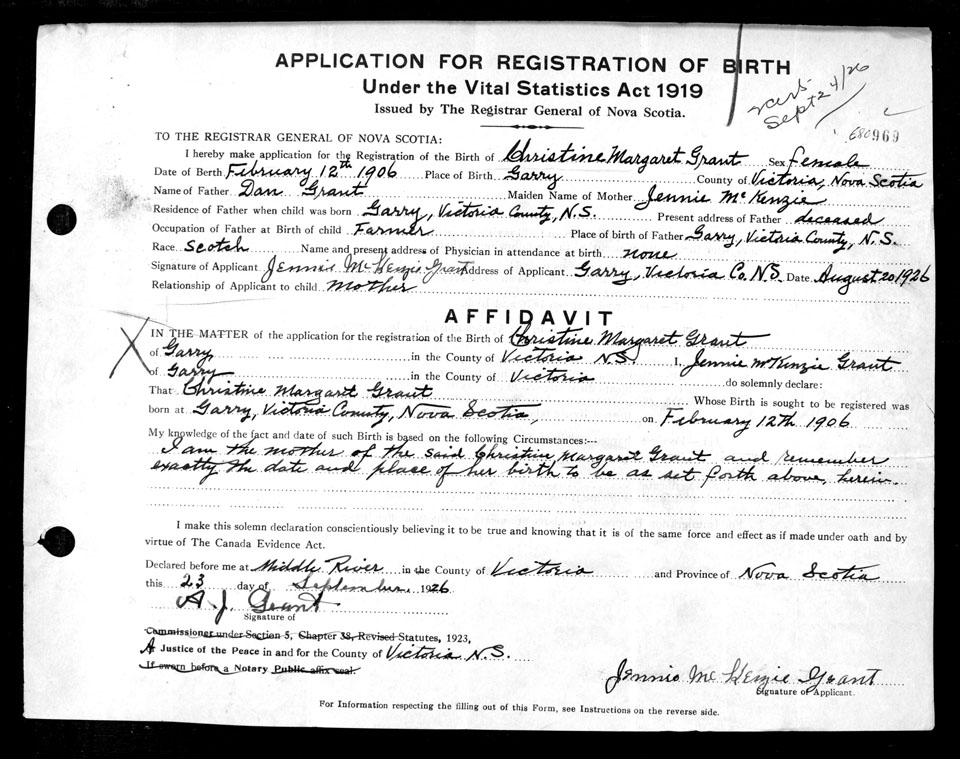 APPLICATION FOR REGISTRATION OF BIRTH
Under the Vital Statistics Act 1919
Issued by The Registrar General of Nova Scotia.
Sept 24/26
680969
TO THE REGISTRAR GENERAL OF NOVA SCOTIA:
I hereby make application for the Registration of the Birth of Christine Margaret Grant Sex female
Date of Berth February 12th 1906 Place of Birth Garry County of Victoria, Nova Scotia
Name of Father Dan Grant Maiden Name of Mother Jennie McKenzie
Residence of Father when child was born Garry, Victoria County, N.S. Present address of Father deceased
Occupation of Father at Birth of child Farmer Place of birth of Father Garry, Victoria County, N.S.
Race Scotch Name and present address of Physician in attendance at birth none
Signature of Applicant Jennie McKenzie Grant Address of Applicant Garry, Victoria Co. N.S. Date August 20 1926
Relationship of Applicant to child Mother
AFFIDAVIT
IN THE MATTER of the application for the registration of the Birth of Christine Margaret Grant
of Garry in the County of Victoria N.S. I, Jennie McKinzie Grant
of Garry in the County of Victoria do solemnly declare:
That Christine Margaret Grant Whose Birth is sought to be registered was
born at Garry, Victoria County, Nova Scotia, on February 12th 1906
My knowledge of the fact and date of such Birth is based on the following Circumstances:--
I am the mother of the said Christine Margaret Grant and remember
exactly the date and place of her birth to be as set forth above, herein.
I make this solemn declaration conscientiously believing it to be true and knowing that it is of the same force and effect as if made under oath and by
virtue of The Canada Evidence Act.
Declared before me at Middle River in the County of Victoria and Province of Nova Scotia
this 23 day of September 1926
A. J. Grant
Signature of
Commissioner under Section 5, Chapter 38, Revised Statutes, 1923,
A Justice of the Peace in and for the County of Victoria N.S.
If sworn before a Notary Public affix seal.
Jennie McKenzie Grant
Signature of Applicant.
For Information respecting the filling out of this Form, see Instructions on the reverse side.